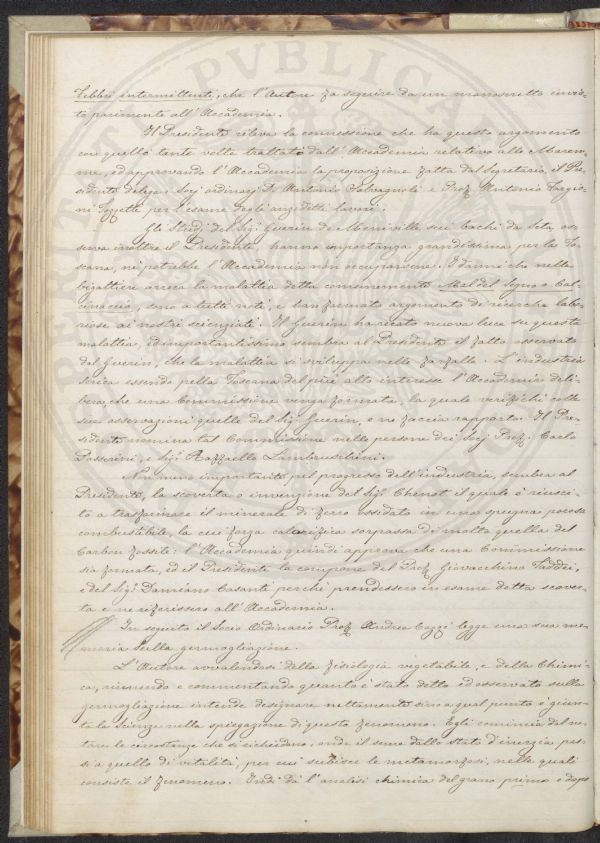 febbri intermittenti, che l'Autore fa seguire da un manoscritto invia-
to parimente all'Accademia.
Il Presidente rileva la connessione che ha questo argomento
con quello tante volte trattato dall'Accademia relativo alle Marem-
me, ed approvando l'Accademia la proposizione fatta dal Segretario, il Pre-
sidente delega i Socj ordinarj Dr. Antonio Salvagnoli e Prof. Antonio Targio-
ni Tozzetti per l'esame degli anzidetti lavori.
Gli Studj del Sig. Guerin de Meneville sui bachi da seta, os-
serva inoltre il Presidente, hanno importanza grandissima per la To-
scana, nè potrebbe l'Accademia non occuparsene. I danni che nelle
bigattiere arreca la malattia detta comunemente Mal del Segno o Cal-
cinaccio, sono a tutti noti, e han formato argomento di ricerche labo-
riose ai nostri scienziati. Il Guerin ha recato nuova luce su questa
malattia, ed importantissimo sembra al Presidente il fatto osservato
del Guerin, che la malattia si sviluppa nelle farfalle. L'industria
serica essendo nella Toscana del più alto interesse l'Accademia deli-
bera, che una Commissione venga formata, la quale verifichi colle
sue osservazioni quelle del Sig. Guerin, e ne faccia rapporto. Il Pre-
sidente nomina tal Commissione nelle persone dei Socj Prof. Carlo
Passerini, e Sig. Raffaello Lambruschini.
Nò meno importante pel progresso dell'industria, sembra al
Presidente, la scoverta o invenzione del Sig. Chenot il quale è riusci-
to a trasformare il minerale di ferro ossidato in una spugna porosa
combustibile, la cui forza calorifica sorpassa di molto quella del
Carbon fossile: l'Accademia quindi approva che una Commissione
sia formata, ed il Presidente la compone del Prof. Giovacchino Taddei,
e del Sig. Damiano Casanti perchè prendessero in esame detta scover-
ta e ne riferissero all'Accademia.
In seguito il Socio Ordinario Prof. Andrea Cozzi legge una sua me-
moria sulla germogliazione.
L'Autore avvalendosi della fisiologia vegetabile, e della Chimi-
ca, riunendo e commentando quanto è stato detto ed osservato sulla
germogliazione intende designare nettamente sino a qual punto è giun-
ta la Scienza nella spiegazione di questo fenomeno. Egli comincia dal no-
tare le circostanze che si richiedono, onde il seme dallo stato d'inerzia pas-
si a quello di vitalità, per cui subisce le metamorfosi, nelle quali
consiste il fenomeno. Indi dà l'analisi chimica del grano prima e dopo